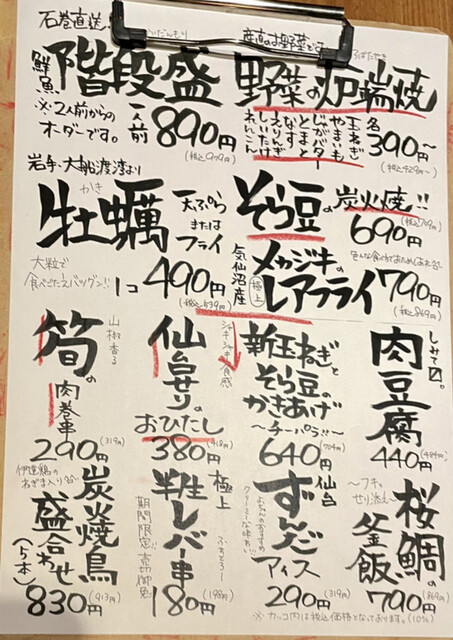 石巻直送!
鮮魚
階段盛
※2人前からの
オーダーです。
一人前
890円
(税込979円)
産直のお野菜です
ろばたやき
野菜の炉端焼
玉ねぎ
やまいも
じゃがバター
とまと
なす
えりんぎ
しいたけ
れんこん
各390円~
(税込429円~)
岩手・大船渡湾より
かき
牡蠣
天ぷら
または
フライ
大粒で
食べごたえバツグン!!
1コ
490円
(税込539円)
そら豆の
炭火焼!!
690円
気仙沼産
極上
メカジキの
レアフライ
790円
(税込869円)
山椒香る
筍の
肉巻串
290円
(319円)
シャキシャキ食感
仙台せりの
おひたし
380円
(418円)
新玉ねぎと
そら豆の
かきあげ
~チーパラ!!~
640円
(704円)
しみてる。
肉豆腐
440円
(484円)
伊達鶏の
ねぎま入り
炭火焼鳥
盛合わせ
(5本)
830円
(913円)
極上
半生レバー串
期間限定!!
180円
(198円)
仙台
ずんだ
アイス
クリーミーな味わい
290円
(319円)
~フキと
せり添え~
桜鯛の
釜飯
790円
(869円)
※カッコ内は税込価格となっております。(10%)